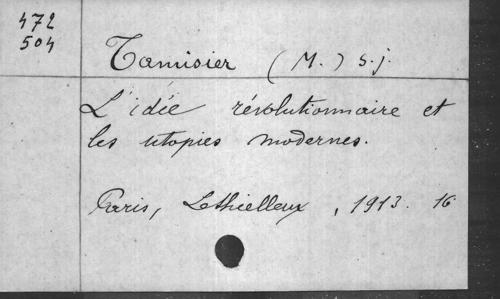 472
504
Tamisier (M.) S.j.
L'idée révolutionnaire et
les utopies modernes.
Paris, Lethielleux, 1913. 16